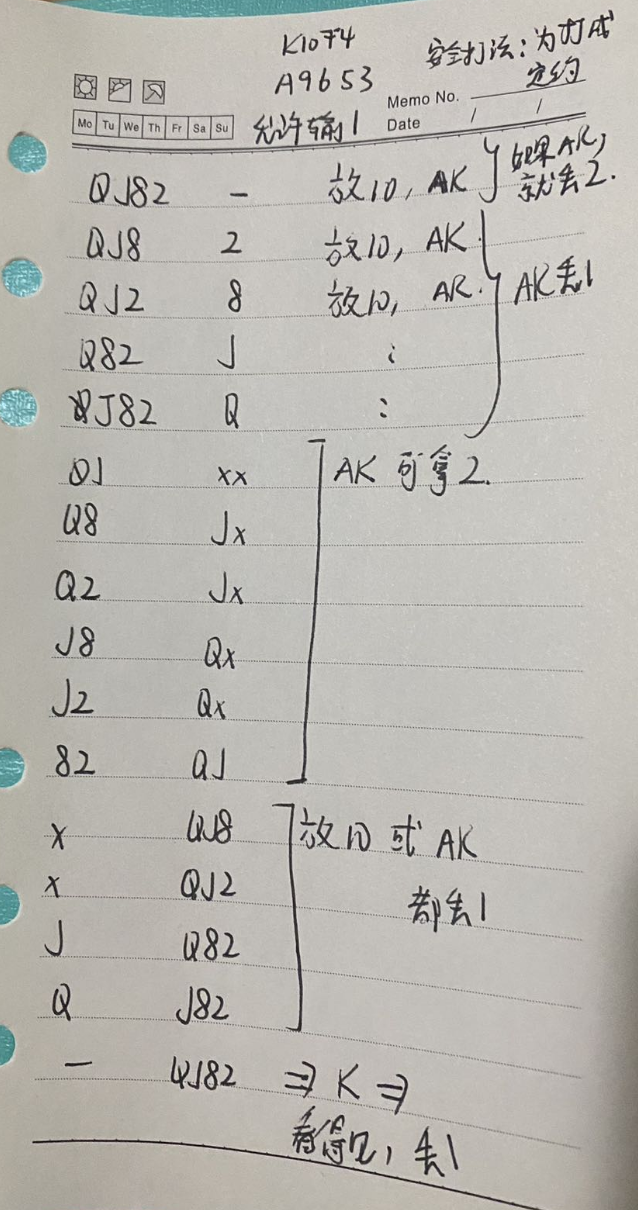 K1074
A9653
安全打法：为打成
定约
Memo No.
Mo Tu We Th Fr Sa Su
允许输1
Date / /
QJ82 — 放10, AK
如果AK,
就丢2.
QJ8 2 放10, AK
QJ2 8 放10, AK
AK丢1
Q82 J :
J82 Q :
QJ xx AK 可拿2.
Q8 Jx
Q2 Jx
J8 Qx
J2 Qx
82 QJ
x QJ8 放10 或 AK
x QJ2 都丢1
J Q82
Q J82
— QJ82 ⇒ K ⇒
看得见, 丢1